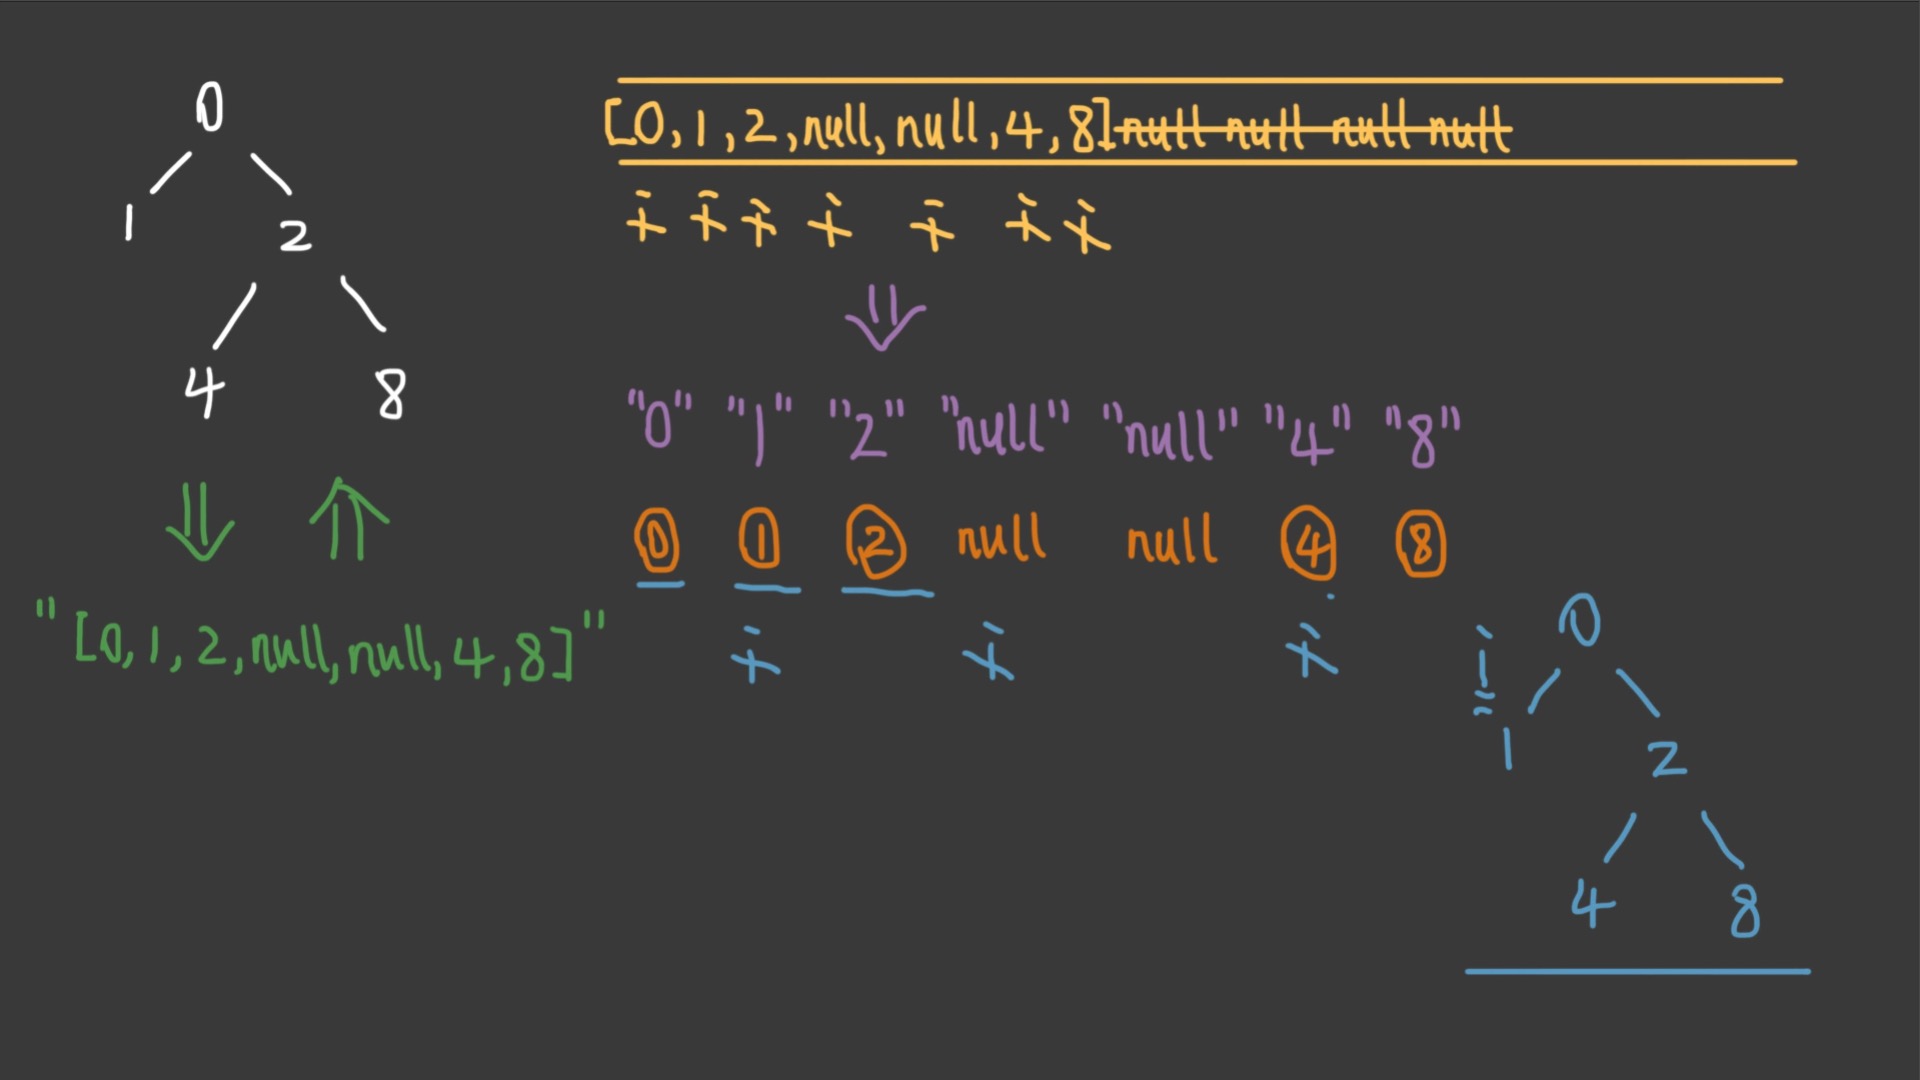 0
1
2
4 8
"[0,1,2,null,null,4,8]"
[0,1,2,null,null,4,8]null null null null
i i i i i i i
"0" "1" "2" "null" "null" "4" "8"
0 1 2 null null 4 8
i i i i
0
1
2
4 8